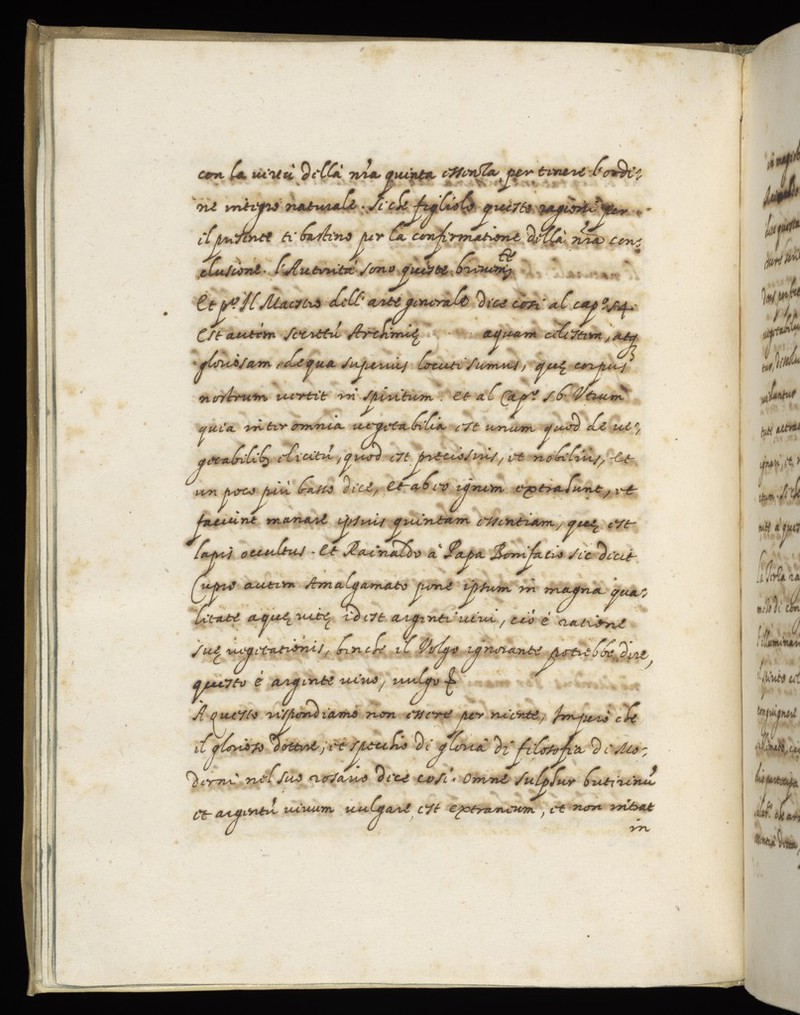 con la uirtù della nr̃a quinta essenza per tenere l'ordi:
ne integro naturale. Si che figliolo queste ragioni per
il presente ti bastino per la confirmatione della nr̃a con:
clusione. l'Autorità sono queste breuem.te
Et p.o Il Maestro dell'arte generale dice così al cap.o 54.
Est autem secretũ Archimię aquam celestem, atq
gloriosam, de qua superius locuti sumus, quę corpus
nostrum uertit in spiritum. et al Cap.o 56. Utrum
quia inter omnia uegetabilia est unum quod de ue:
getabilib elicitũ, quod est preciosius, et nobilius, et
un poco più basso dice, et ab eo ignem extrahunt, et
faciunt manare ipsius quintam essentiam, quę est
lapis occultus. Et Rainaldo à Papa Bonifacio sic dicit
Cupro autem Amalgamato pone ipsum in magna qua:
litate aquę uitę idest argenti uiui, ciò è ratione
suę uegetationis, benche il Volgo ignorante potrebbe dire,
questo è argento uiuo, uulgo
A questo rispondiamo non essere per niente, Imperò che
il glorioso dottore, et specchio di gloria di filosofia di Mo:
derni nel suo rosario dice così. Omne sulphur
et argentũ uiuum uulgare est extraneum, et non intrat
in